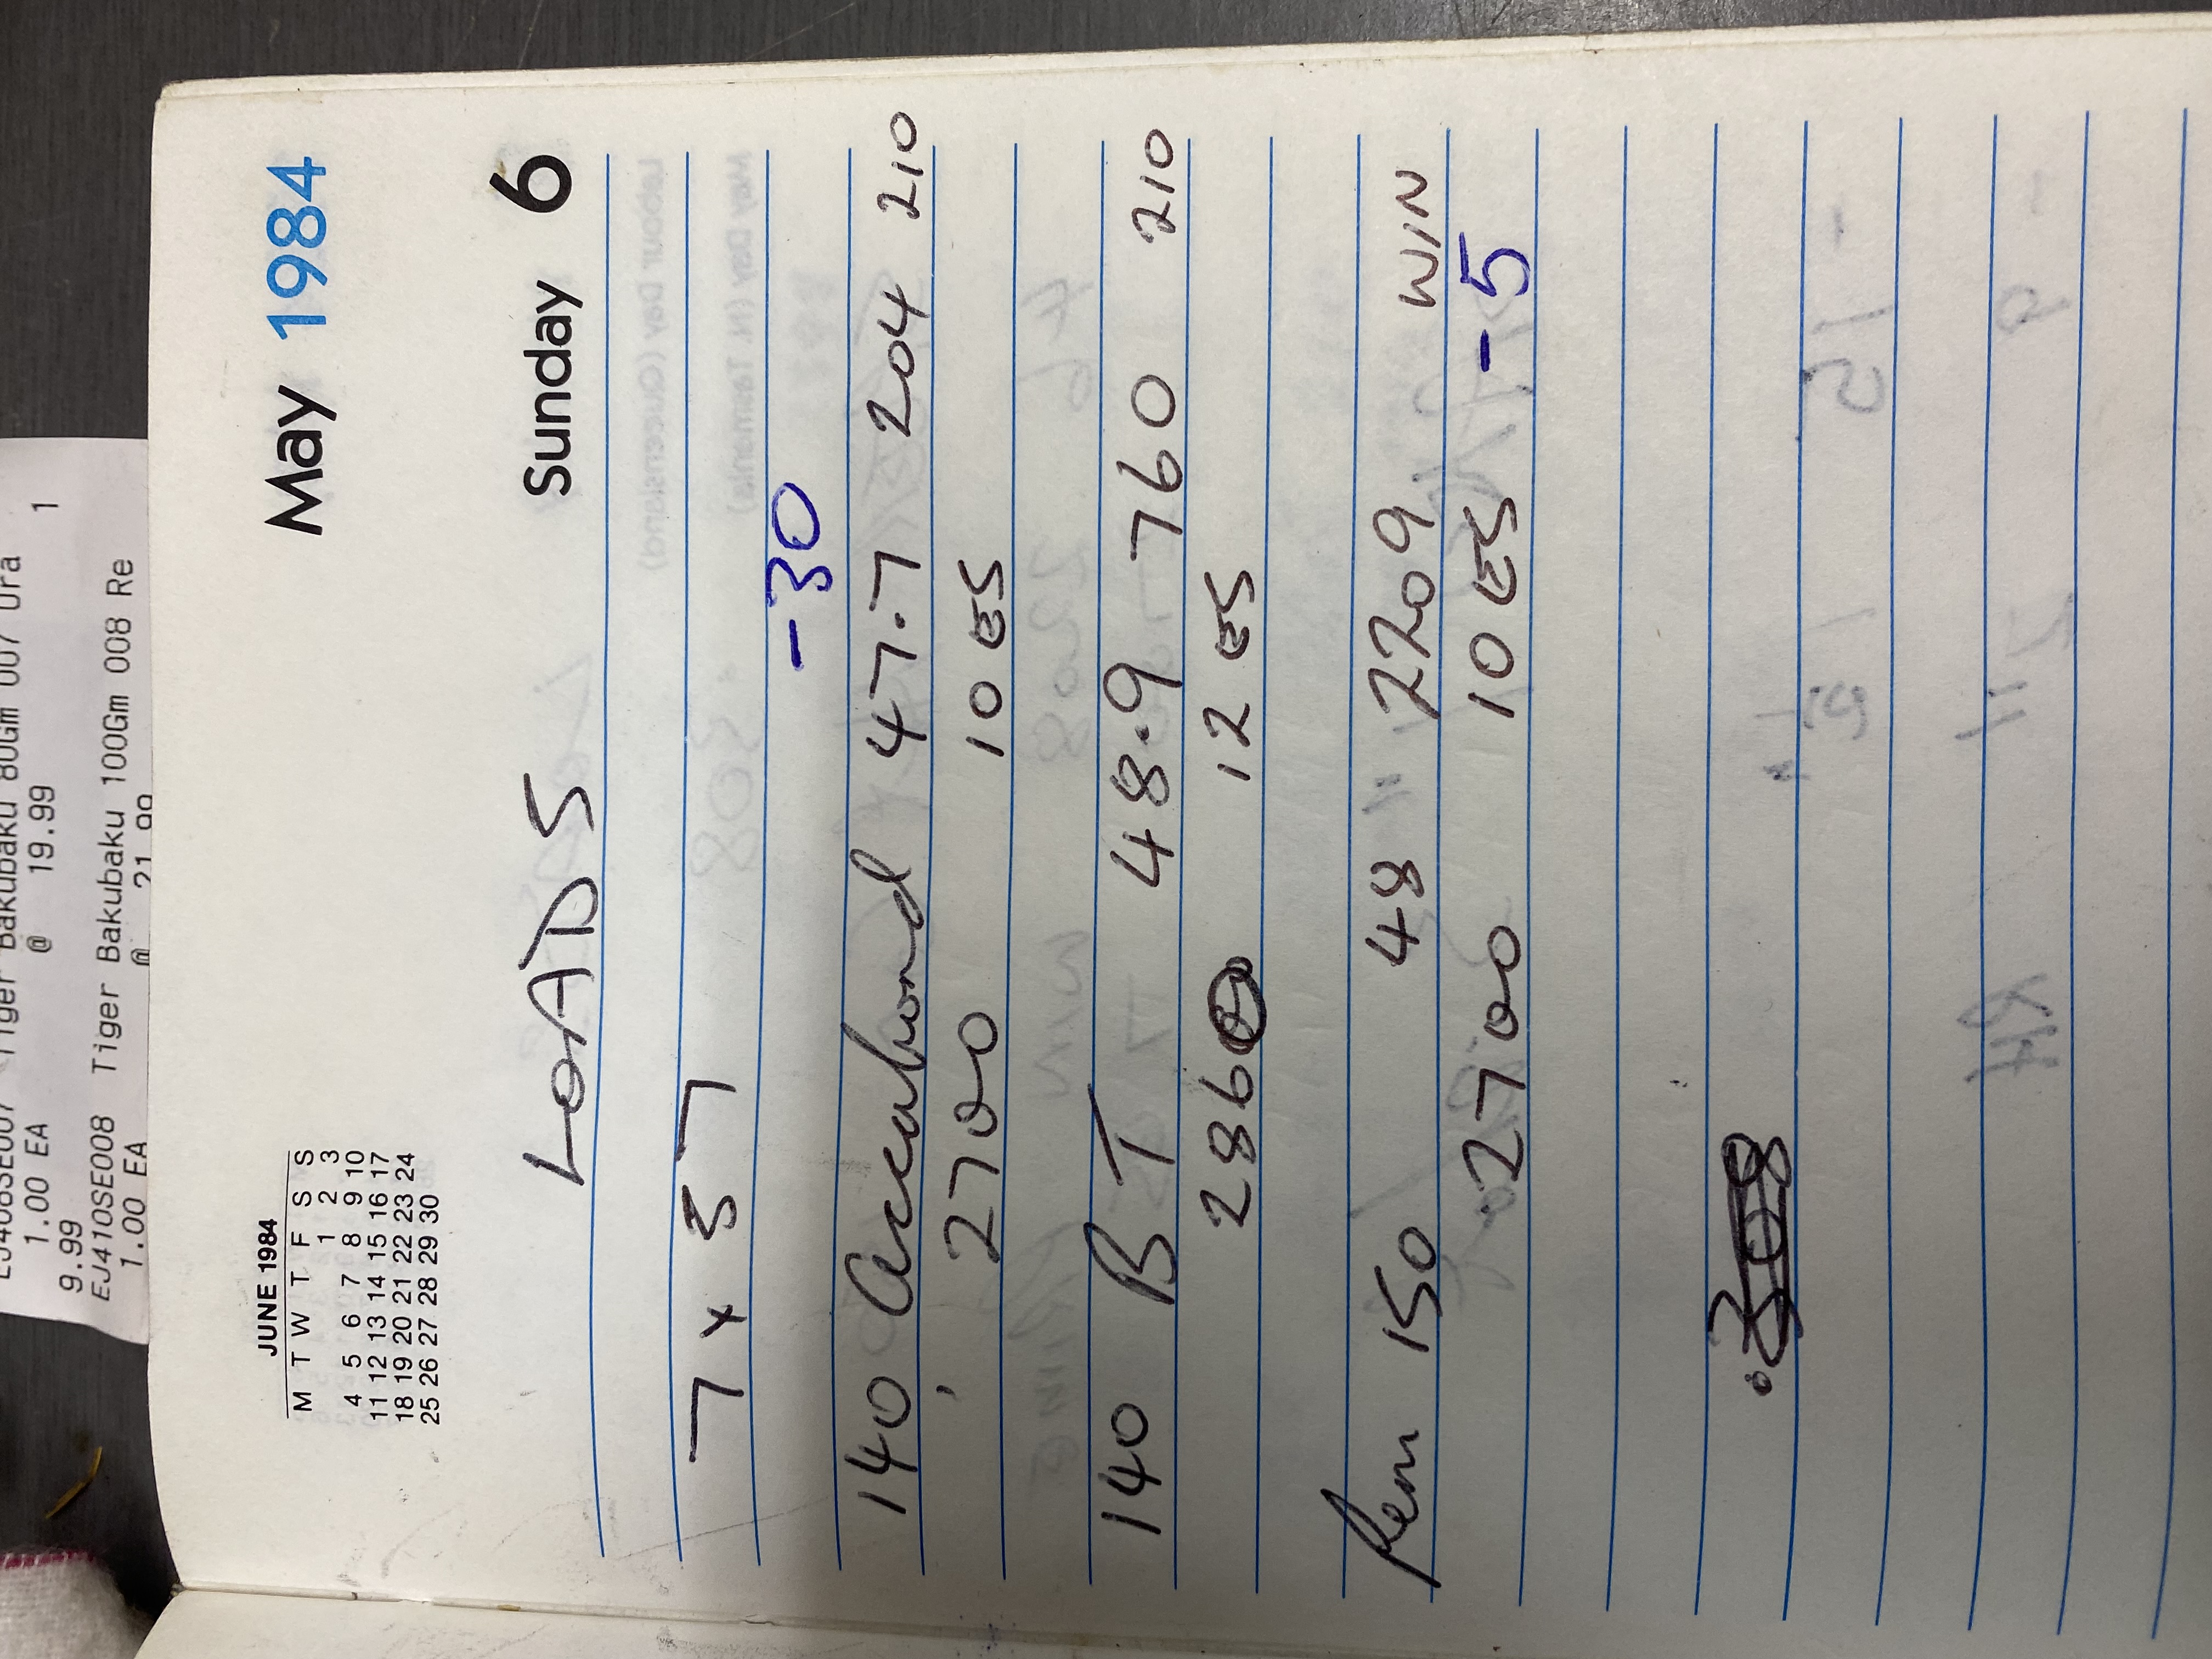 EJ408SE007 Tiger Bakubaku 80Gm 007 Ura
1.00 EA @ 19.99 1
9.99
EJ410SE008 Tiger Bakubaku 100Gm 008 Re
1.00 EA @ 21.99
May 1984
JUNE 1984
M T W T F S S
1 2 3
4 5 6 7 8 9 10
11 12 13 14 15 16 17
18 19 20 21 22 23 24
25 26 27 28 29 30
Sunday 6
LOADS
7 x 57
-30
140 Accubond 47.7 204 210
2700 10 ES
140 BT 48.9 760 210
2860 12 ES
Rem 150 48 2209 WIN
2700 10 ES -5